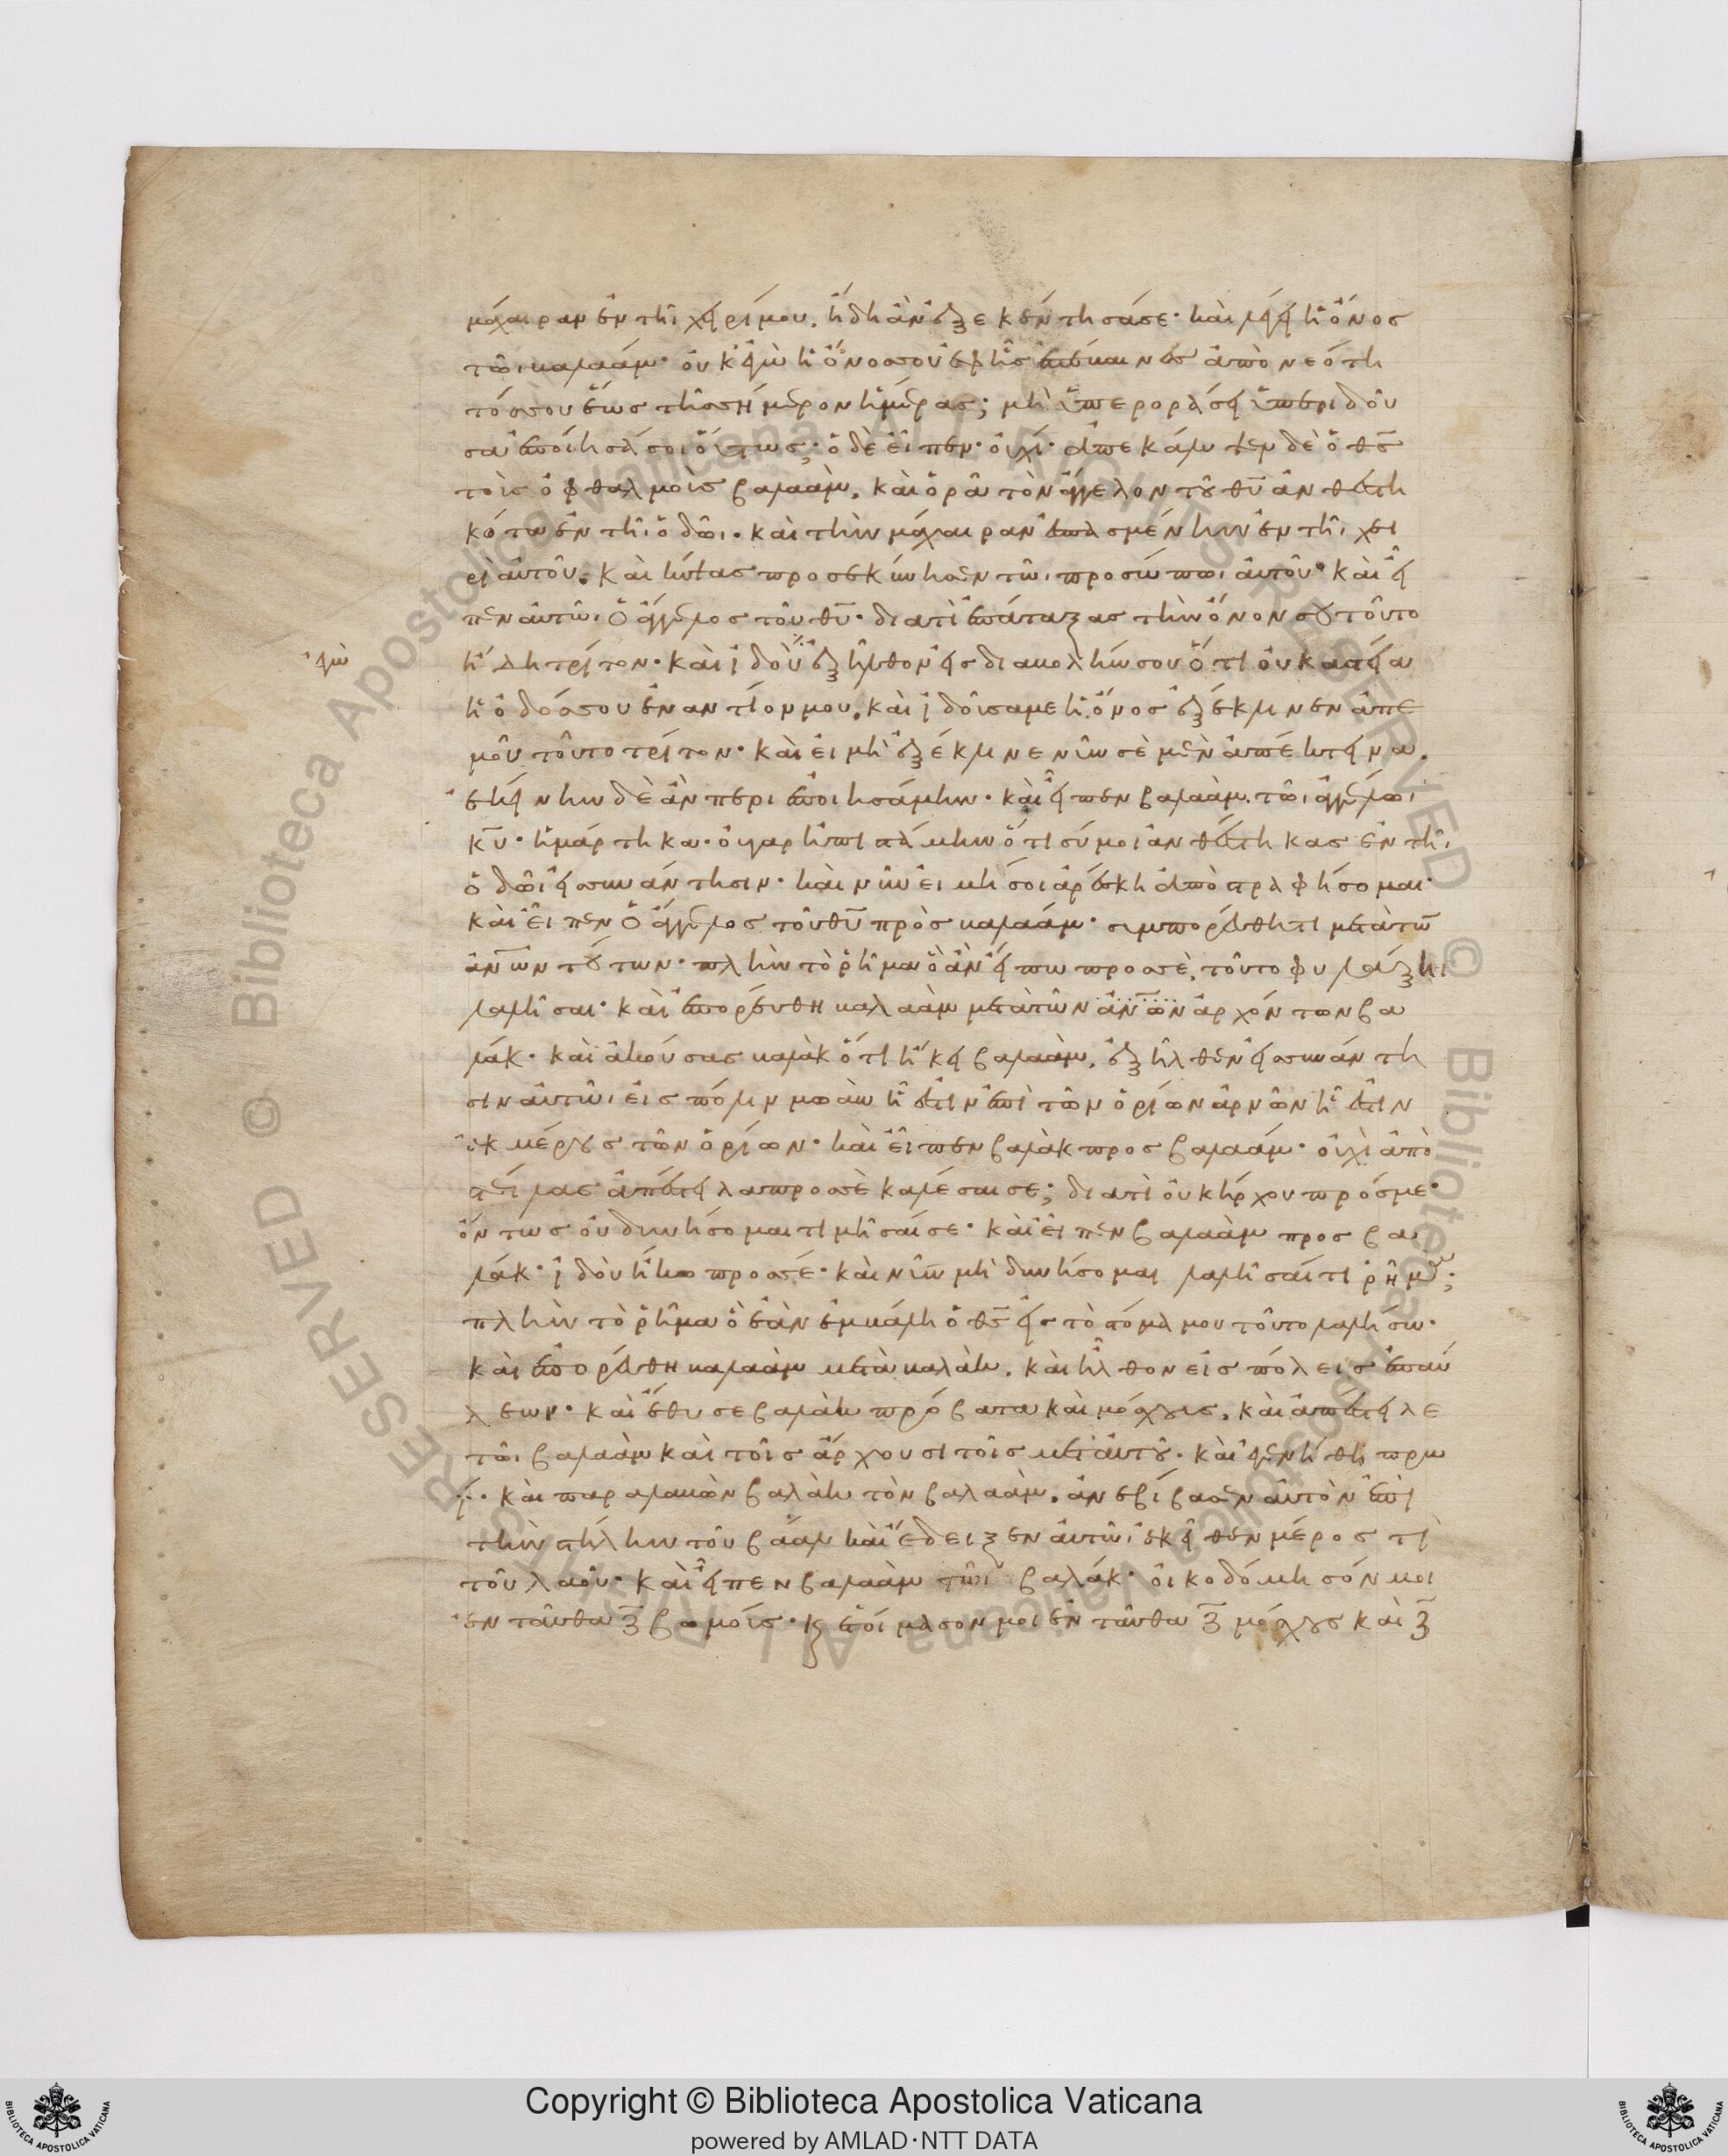 μάχαιραν ἐν τῆι χειρί μου. ἤδη ἂν ἐξεκέντησά σε· καὶ λέγει ἡ ὄνος
τῶι βαλαάμ· οὐκ ἐγὼ ἡ ὄνος σου ἐφ ἧς ἐπέβαινες ἀπὸ νεότη
τός σου ἕως τῆς σήμερον ἡμέρας; μὴ ὑπεροράσει ὑπεριδοῦ
σα ἐποίησά σοι οὕτως; ὁ δὲ εἶπεν· οὐχί· ἀπεκάλυψεν δὲ ὁ θς
τοὶς ὀφθαλμοὶς βαλαὰμ. καὶ ὁρᾶ τὸν ἄγγελον τοῦ θυ ἀνθεστη
κότα ἐν τῆι ὁδῶι. καὶ τὴν μάχαιραν ἐσπασμένην ἐν τῆι χει
ρὶ αὐτοῦ. καὶ κύψας προσεκύνησεν τῶι προσώπωι αὐτοῦ· καὶ εἶ
πεν αὐτῶι ὁ ἄγγελος τοῦ θυ· διατὶ ἐπάταξας τὴν ὄνον σου τοῦτο
ἐγὼ
ἤδη τρίτον· καὶ ἰδοὺ ἐξῆλθον εἰς διαβολήν σου ὅτι οὐκ ἀστεία
ἡ ὁδός σου ἐναντίον μου. καὶ ἰδοῦσα με ἡ ὄνος ἐξέκλινεν ἀπε
μοῦ τοῦτο τρίτον· καὶ εἰ μὴ ἐξέκλινε νῦν σὲ μὲν ἀπέκτεινα.
ἐκείνην δὲ ἂν περιεποιησάμην· καὶ εἶπεν βαλαὰμ τῶι ἀγγέλωι
κυ· ἡμάρτηκα· οὐ γαρ ἠπιστάμην ὅτι σύ μοι ἀνθέστηκας ἐν τῆι
ὁδῶι εἰς συνάντησιν· καὶ νῦν εἰ μή σοι ἀρέσκη ἀποστραφήσομαι·
καὶ εἶπεν ὁ ἄγγελος τοῦ θυ πρὸς βαλαάμ· συμπορεύθητι μετὰ τῶ
ἀνων τούτων· πλὴν τὸ ῥῆμα ὃ ἂν εἴπω πρὸς σὲ, τοῦτο φυλάξηι
λαλῆσαι· καὶ ἐπορεύθη βαλαὰμ μετὰ τῶν ἀνων ἀρχόντων βα
λάκ· καὶ ἀκούσας βαλὰκ ὅτι ἥκει βαλαὰμ. ἐξῆλθεν εἰς συνάντη
σιν αὐτῶι εἰς πόλιν μωὰβ ἥ ἐστιν ἐπὶ τῶν ὁρίων ἀρνῶν ἥ ἐστιν
ἐκ μέρους τῶν ὁρίων· καὶ εἶπεν βαλὰκ προς βαλαάμ· οὐχὶ ἀπὸ
στείλας ἀπέστειλα πρὸς σὲ καλέσαι σε; διατὶ οὐκ ἤρχου πρός με·
ὄντως οὐ δυνήσομαι τιμῆσαί σε· καὶ εἶπεν βαλαὰμ προς βα
λάκ· ἰδοὺ ἥκω πρὸς σέ· καὶ νῦν μὴ δυνήσομαι λαλῆσαί τι ῥῆμα;
πλὴν τὸ ῥῆμα ὃ ἐὰν ἐμβάλη ὁ θς εἰς τὸ στόμα μου τοῦτο λαλήσω·
καὶ ἐπορεύθη βαλαὰμ μετὰ βαλὰκ. καὶ ἦλθον εἰς πόλεις ἐπαύ
λεων· καὶ ἔθυσε βαλὰκ πρόβατα καὶ μόσχους. καὶ ἀπέστειλε
τῶι βαλαὰμ καὶ τοῖς ἄρχουσι τοῖς μετ αὐτοῦ· καὶ ἐγενήθη πρω
ί· καὶ παραλαβὼν βαλὰκ τὸν βαλαὰμ. ἀνεβίβασεν αὐτὸν ἐπὶ
τὴν στήλην τοῦ βάαλ καὶ ἔδειξεν αὐτῶι ἐκεῖθεν μέρος τὶ
τοῦ λαοῦ· καὶ εἶπεν βαλαὰμ τῶι βαλάκ· οἰκοδόμησόν μοι
ἐνταῦθα ζ βωμούς· κ ἑτοίμασον μοι ἐνταῦθα ζ μόσχους καὶ ζ
Copyright © Biblioteca Apostolica Vaticana
powered by AMLAD·NTT DATA